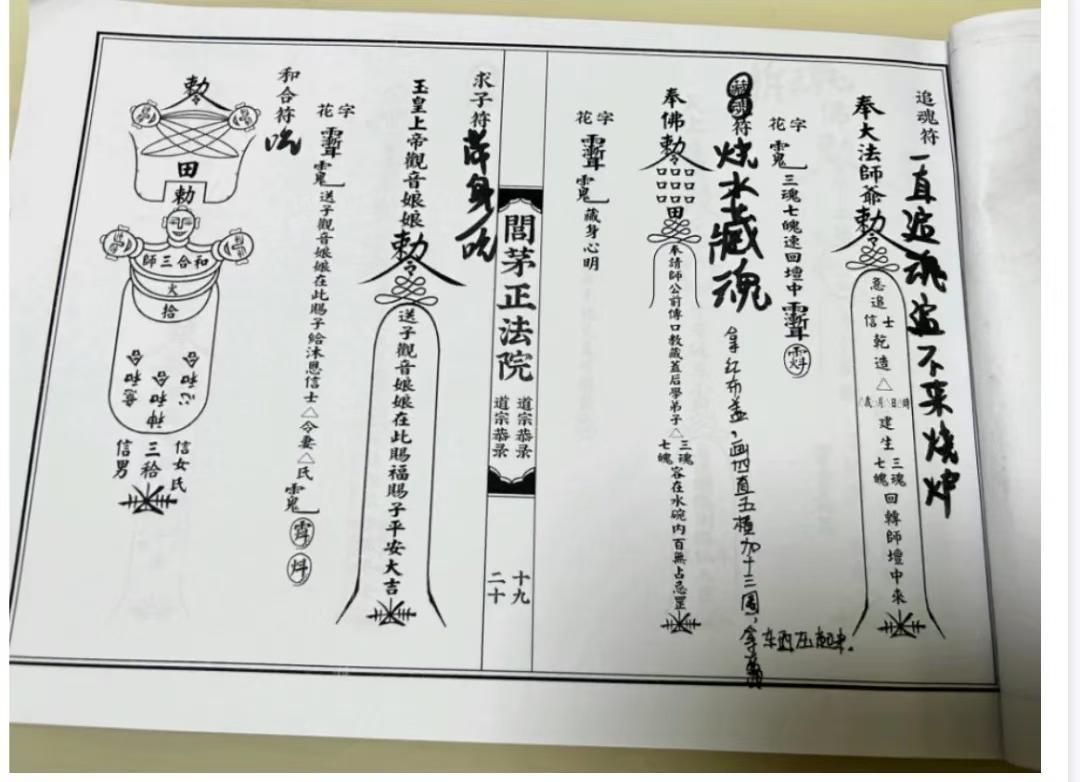 追魂符
一直追魂追不来烧炉
奉大法師爺勅令
急追
信士乾造△
歲月日時
建生
三魂
七魄
回轉師壇中來
花字
三魂七魄速回壇中
藏魂符
烧水藏魂
拿红布盖,画四直五横加十三圈,拿
东西压起来.
奉佛勅令
田
奉請師公前傳口教藏蓋后學弟子△
三魂
七魄
容在水碗内百無占忌罡
花字
藏身心明
閭茅正法院
道宗恭录
道宗恭录
十九
二十
求子符
带身吃
玉皇上帝觀音娘娘勅令
送子觀音娘娘在此賜福賜子平安大吉
花字
送子觀音娘娘在此賜子給沐恩信士△令妻△氏
和合符
吃
勅令
田
勅
和合三師
火
拾
心和合
神和合
意和合
信女氏
三袷
信男